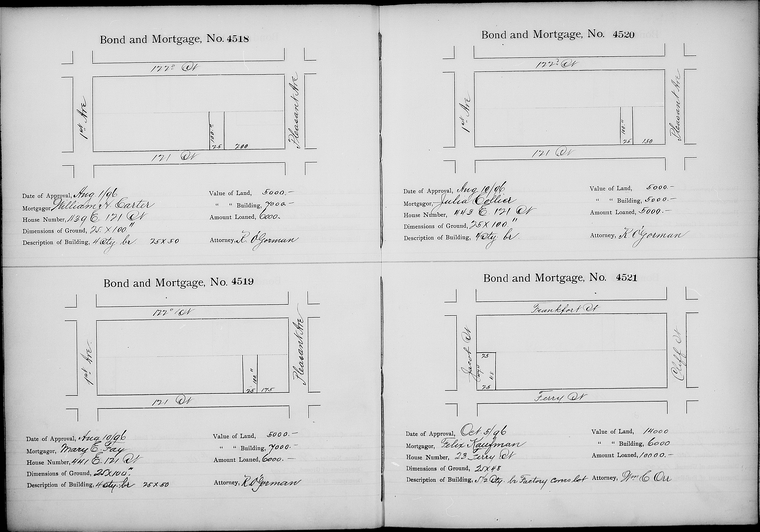 Bond and Mortgage, No. 4518
122d St
1st Ave
Pleasant Ave
100"
25 200
121 St
Date of Approval, Aug 1/96 Value of Land, 5000.—
Mortgagor, William H. Carter " " Building, 7000.—
House Number, 439 E. 121 St Amount Loaned, 6000.—
Dimensions of Ground, 25 X 100"
Description of Building, 4 Sty br 25 X 50 Attorney, K. O'Gorman
Bond and Mortgage, No. 4519
122d St
1st Ave
Pleasant Ave
100"
25 175
121 St
Date of Approval, Aug 10/96 Value of Land, 5000.—
Mortgagor, Mary E. Fay " " Building, 7000.—
House Number, 441 E. 121 St Amount Loaned, 6000.—
Dimensions of Ground, 25 X 100"
Description of Building, 4 Sty br 25 X 50 Attorney, K O'Gorman
Bond and Mortgage, No. 4520
122d St
1st Ave
Pleasant Ave
100"
25 150
121 St
Date of Approval, Aug 10/96 Value of Land, 5000.—
Mortgagor, Julia Collier " " Building, 5000.—
House Number, 443 E. 121 St Amount Loaned, 5000.—
Dimensions of Ground, 25 X 100"
Description of Building, 4 Sty br Attorney, K O'Gorman
Bond and Mortgage, No. 4521
Frankfort St
Jacob St
Cliff St
25
48
25
Ferry St
Date of Approval, Oct 5/96 Value of Land, 14000
Mortgagor, Felix Kaufman " " Building, 6000
House Number, 23 Ferry St Amount Loaned, 10000.—
Dimensions of Ground, 25 X 48
Description of Building, Sty. br Factory corner lot Attorney, Wm C Orr